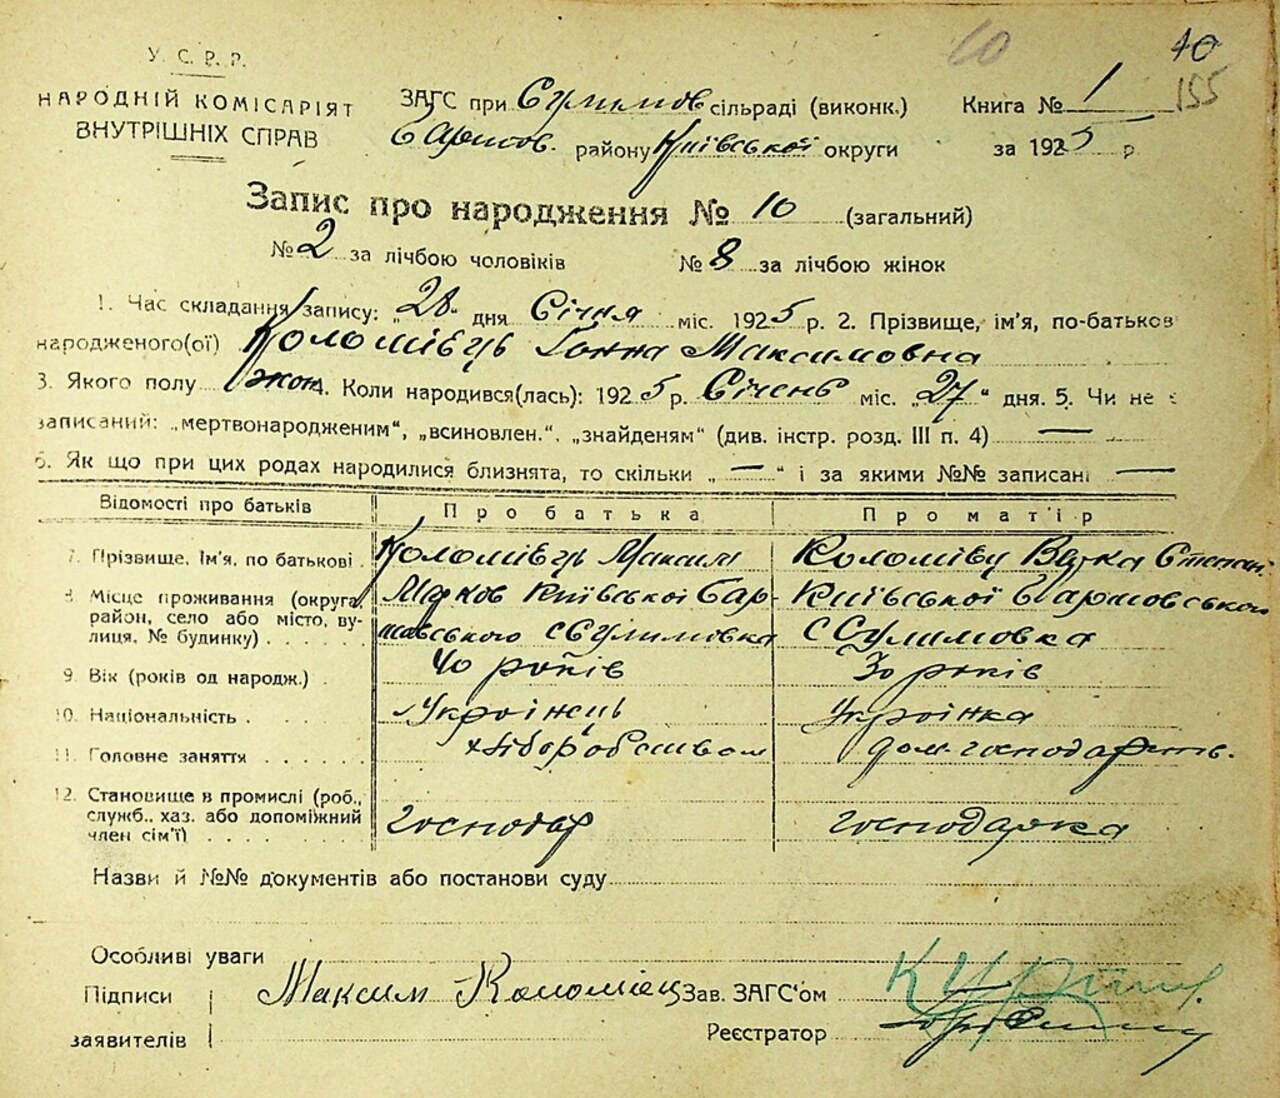 10 10
155
У. С. Р. Р.
НАРОДНІЙ КОМІСАРІЯТ
ВНУТРІШНІХ СПРАВ
ЗАГС при Сулимов сільраді (виконк.) Книга № 1
району Київської округи за 1925 р
Запис про народження № 10 (загальний)
№ 2 за лічбою чоловіків № 8 за лічбою жінок
1. Час складання запису: „28“ дня Січня міс. 1925 р. 2. Прізвище, ім'я, по-батьков
народженого(ої) Коломієць Ганна Максимовна
3. Якого полу жон 4. Коли народився(лась): 1925 р. Січень міс. „27“ дня. 5. Чи не є
записаний: „мертвонародженим“, „всиновлен.“, „знайденям“ (див. інстр. розд. III п. 4) —
6. Як що при цих родах народилися близнята, то скільки „—“ і за якими №№ записані —
Відомості про батьків Про батька Про матір
7. Прізвище, Ім'я, по батькові . Коломієць Максим Коломієц Степан
8. Місце проживання (округа, Марков Київської Бар- Київської Баришовського
район, село або місто, ву- шовського с Сулимовка с Сулимовка
лиця, № будинку) . . . .
9. Вік (років од народж.) . 40 років 30 років
10. Національність . . . . Українець Українка
11. Головне заняття . . . . . . хліборобством дом. господарств.
12. Становище в промислі (роб.,
служб., хаз. або допоміжний господар господарка
член сім'ї) . . . .
Назви й №№ документів або постанови суду
Особливі уваги
Підписи Максим Коломіец Зав. ЗАГС'ом
заявителів Реєстратор